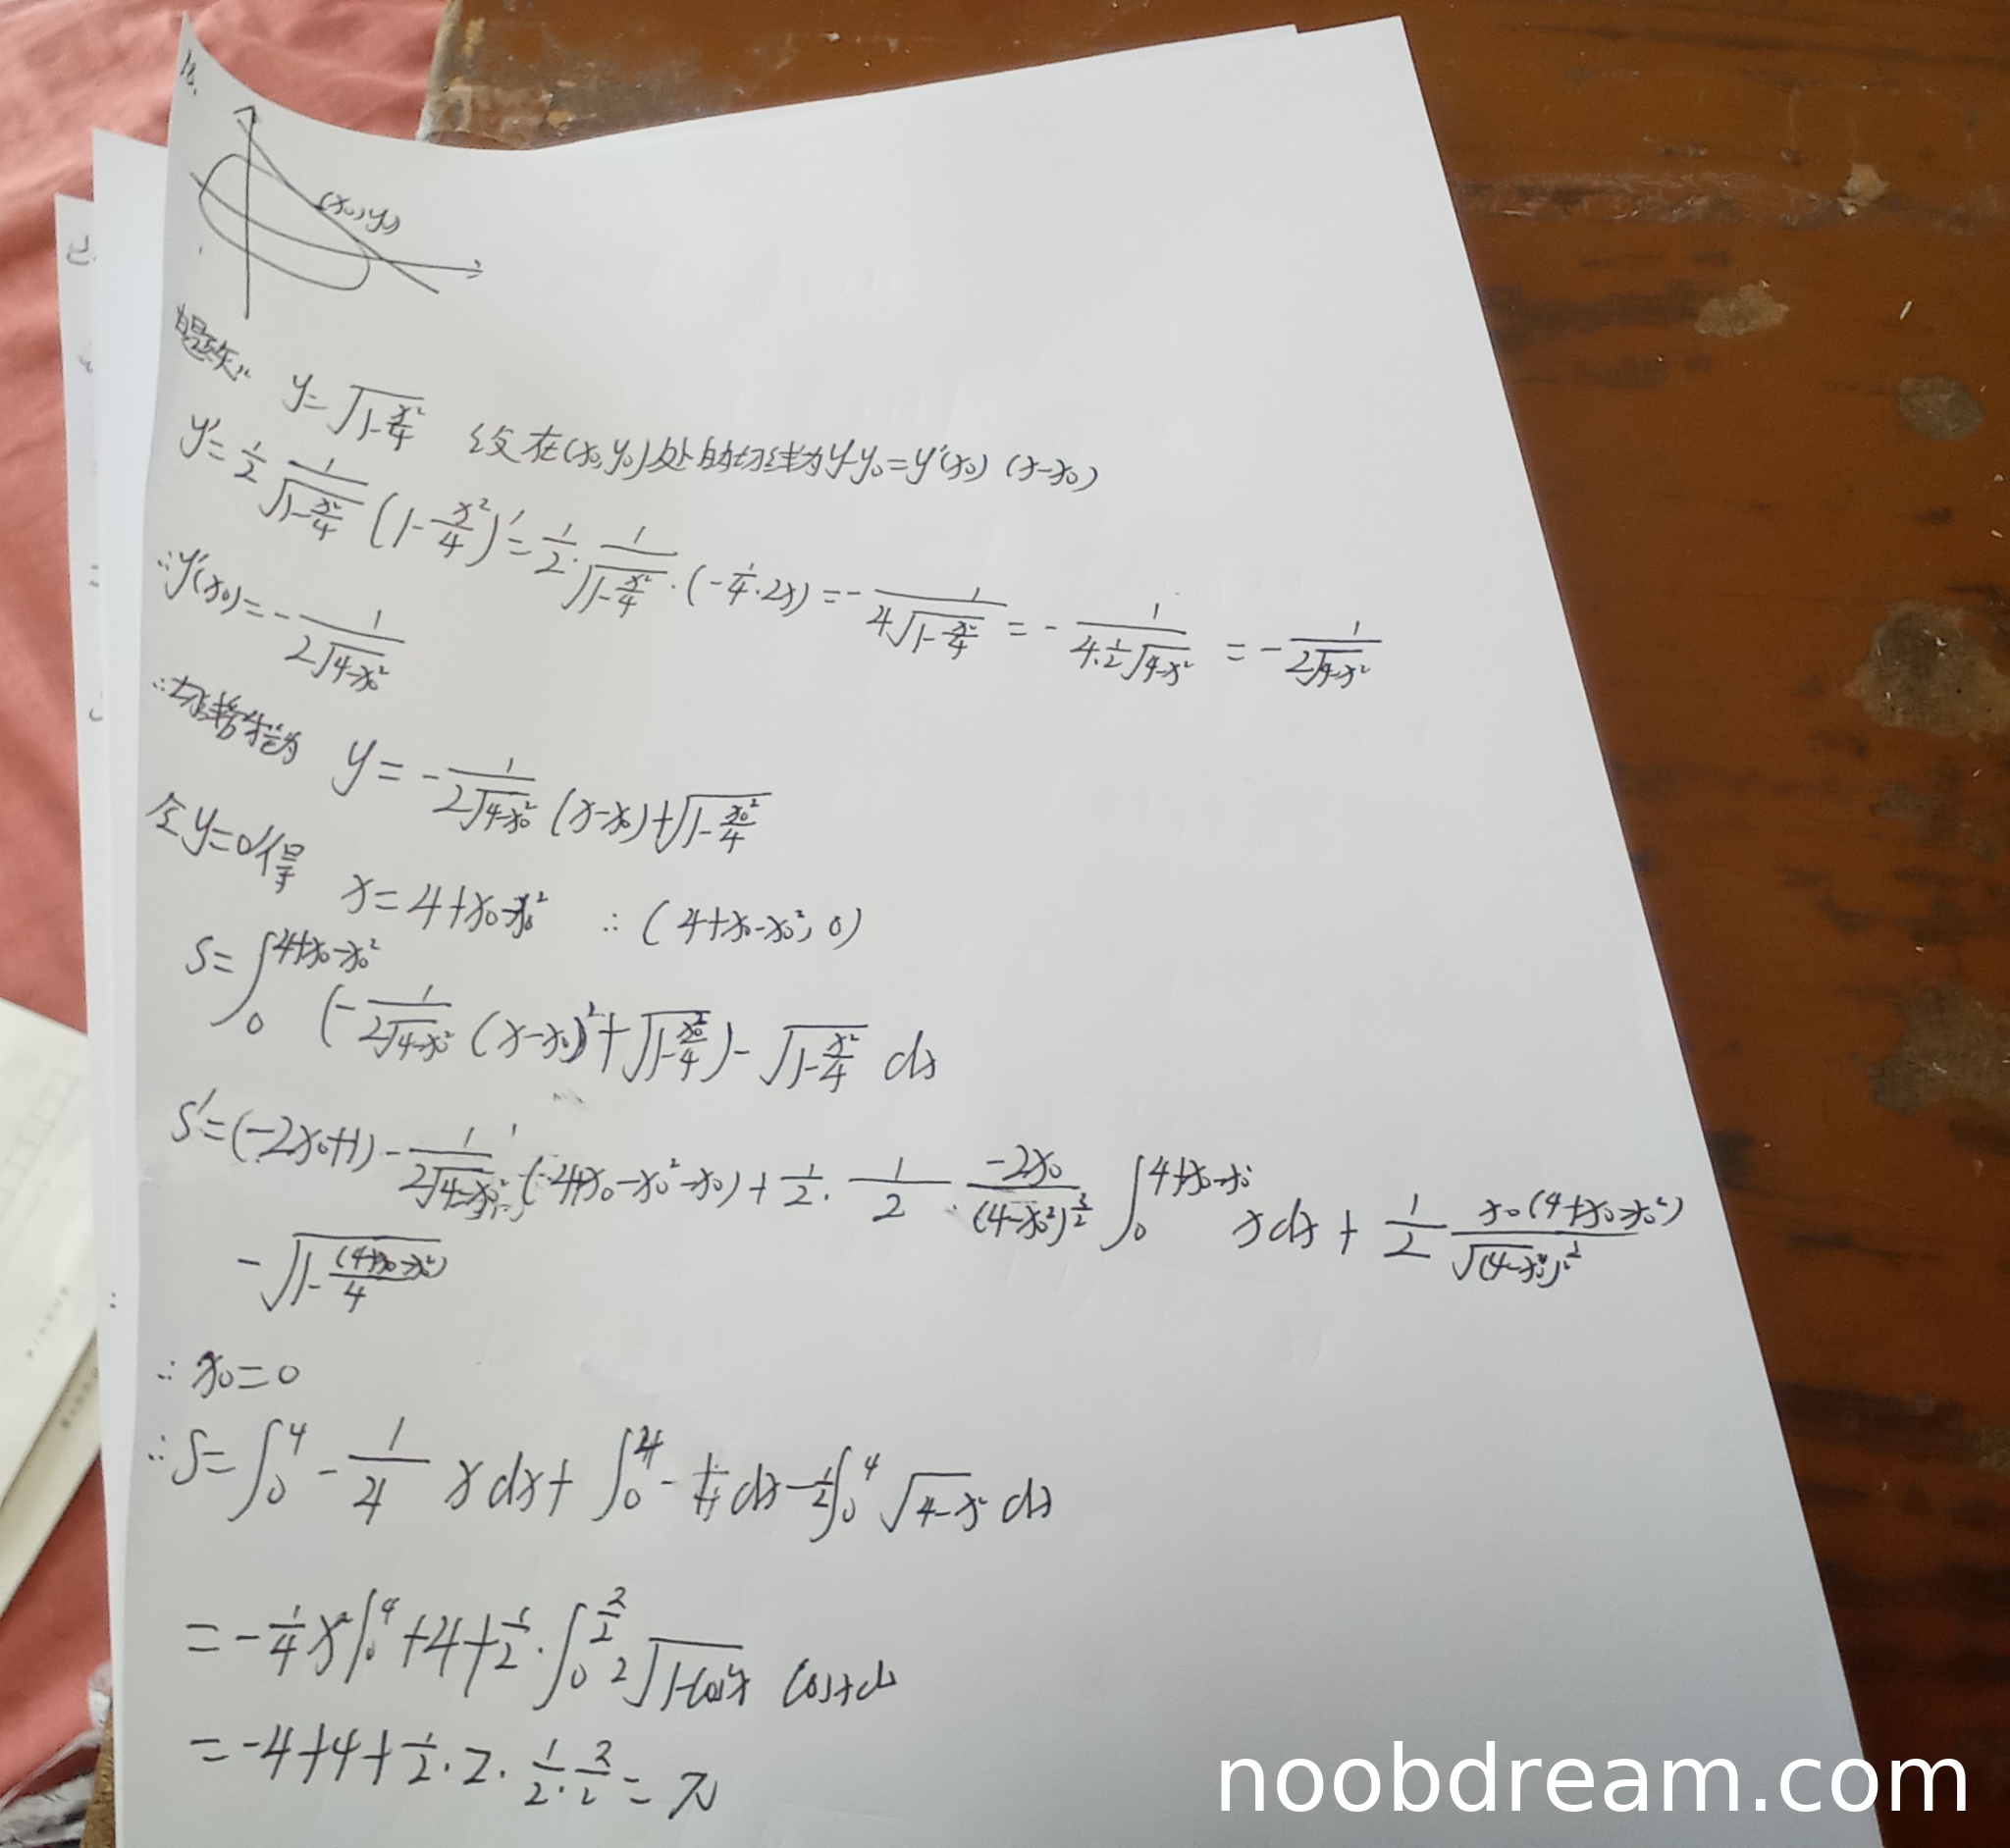 18.
(x₀,y₀)
由题知: y=√(1-x²/4) 设在(x₀,y₀)处的切线为y-y₀=y'(x₀)(x-x₀)
y'=1/2 1/√(1-x²/4) (1-x²/4)'=1/2·1/√(1-x²/4)·(-1/4·2x)=-1/(4√(1-x²/4))=-1/(4·1/2√(4-x²))=-1/(2√(4-x²))
∴y'(x₀)=-1/(2√(4-x₀²))
∴切线方程为 y=-1/(2√(4-x₀²)) (x-x₀)+√(1-x₀²/4)
令y=0得 x=4+x₀-x₀² ∴(4+x₀-x₀², 0)
S=∫₀^(4+x₀-x₀²) (-1/(2√(4-x₀²)) (x-x₀)²+√(1-x₀²/4))-√(1-x²/4) dx
S'=(-2x₀+1)-1/(2√(4-x₀²)) (4+x₀-x₀²-x₀)+1/2·1/2·(-2x₀)/(4-x₀²)^(3/2) ∫₀^(4+x₀-x₀²) xdx+1/2 x₀(4+x₀-x₀²)/√(4-x₀²)²
-√(1-(4+x₀-x₀²)/4)
∴x₀=0
∴S=∫₀⁴-1/4 xdx+∫₀⁴- dx-1/2∫₀⁴√(4-x²) dx
=-1/4x²|₀⁴+4+1/2·∫₀^(π/2) 2√(1-cos²x) cosxdx
=-4+4+1/2·2·1/2·π/2=π
noobdream.com